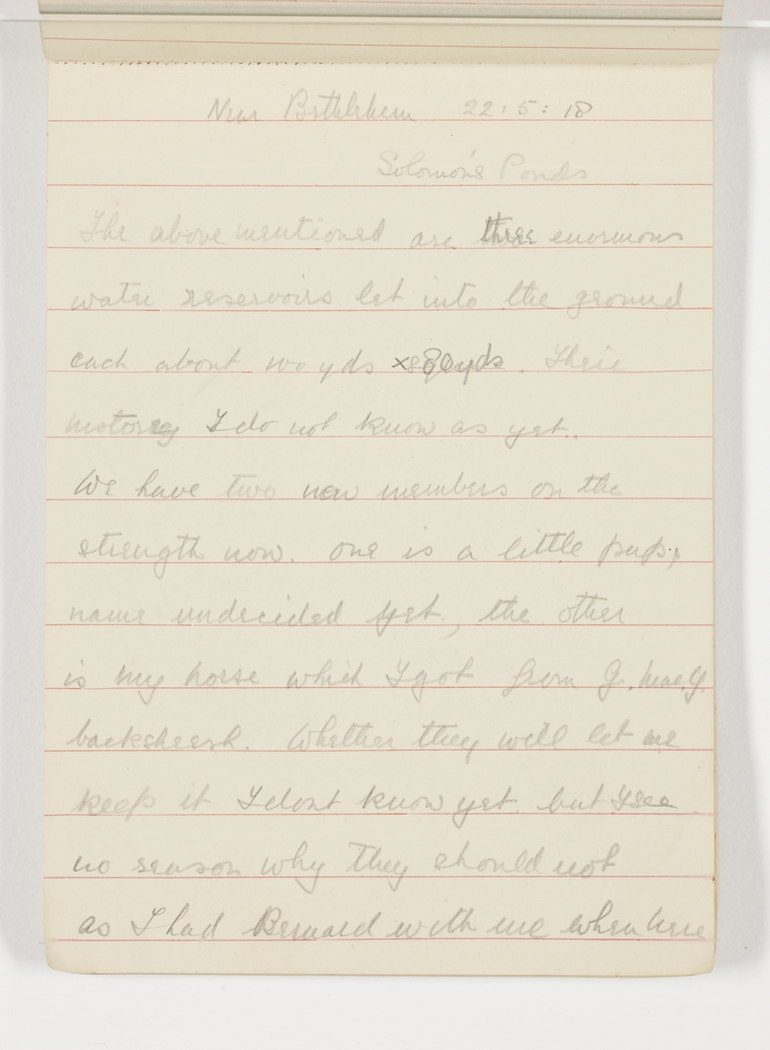 Near Bethlehem 22:5:18
Solomon's Ponds
The above mentioned are three enormous
water reservoirs let into the ground
each about 100 yds x 80 yds. Their
history I do not know as yet.
We have two new members on the
strength now. One is a little pup,
name undecided yet, the other
is my horse which I got from G.
backsheesh. Whether they will let me
keep it I dont know yet but I see
no reason why they should not
as I had Bernard with me when here